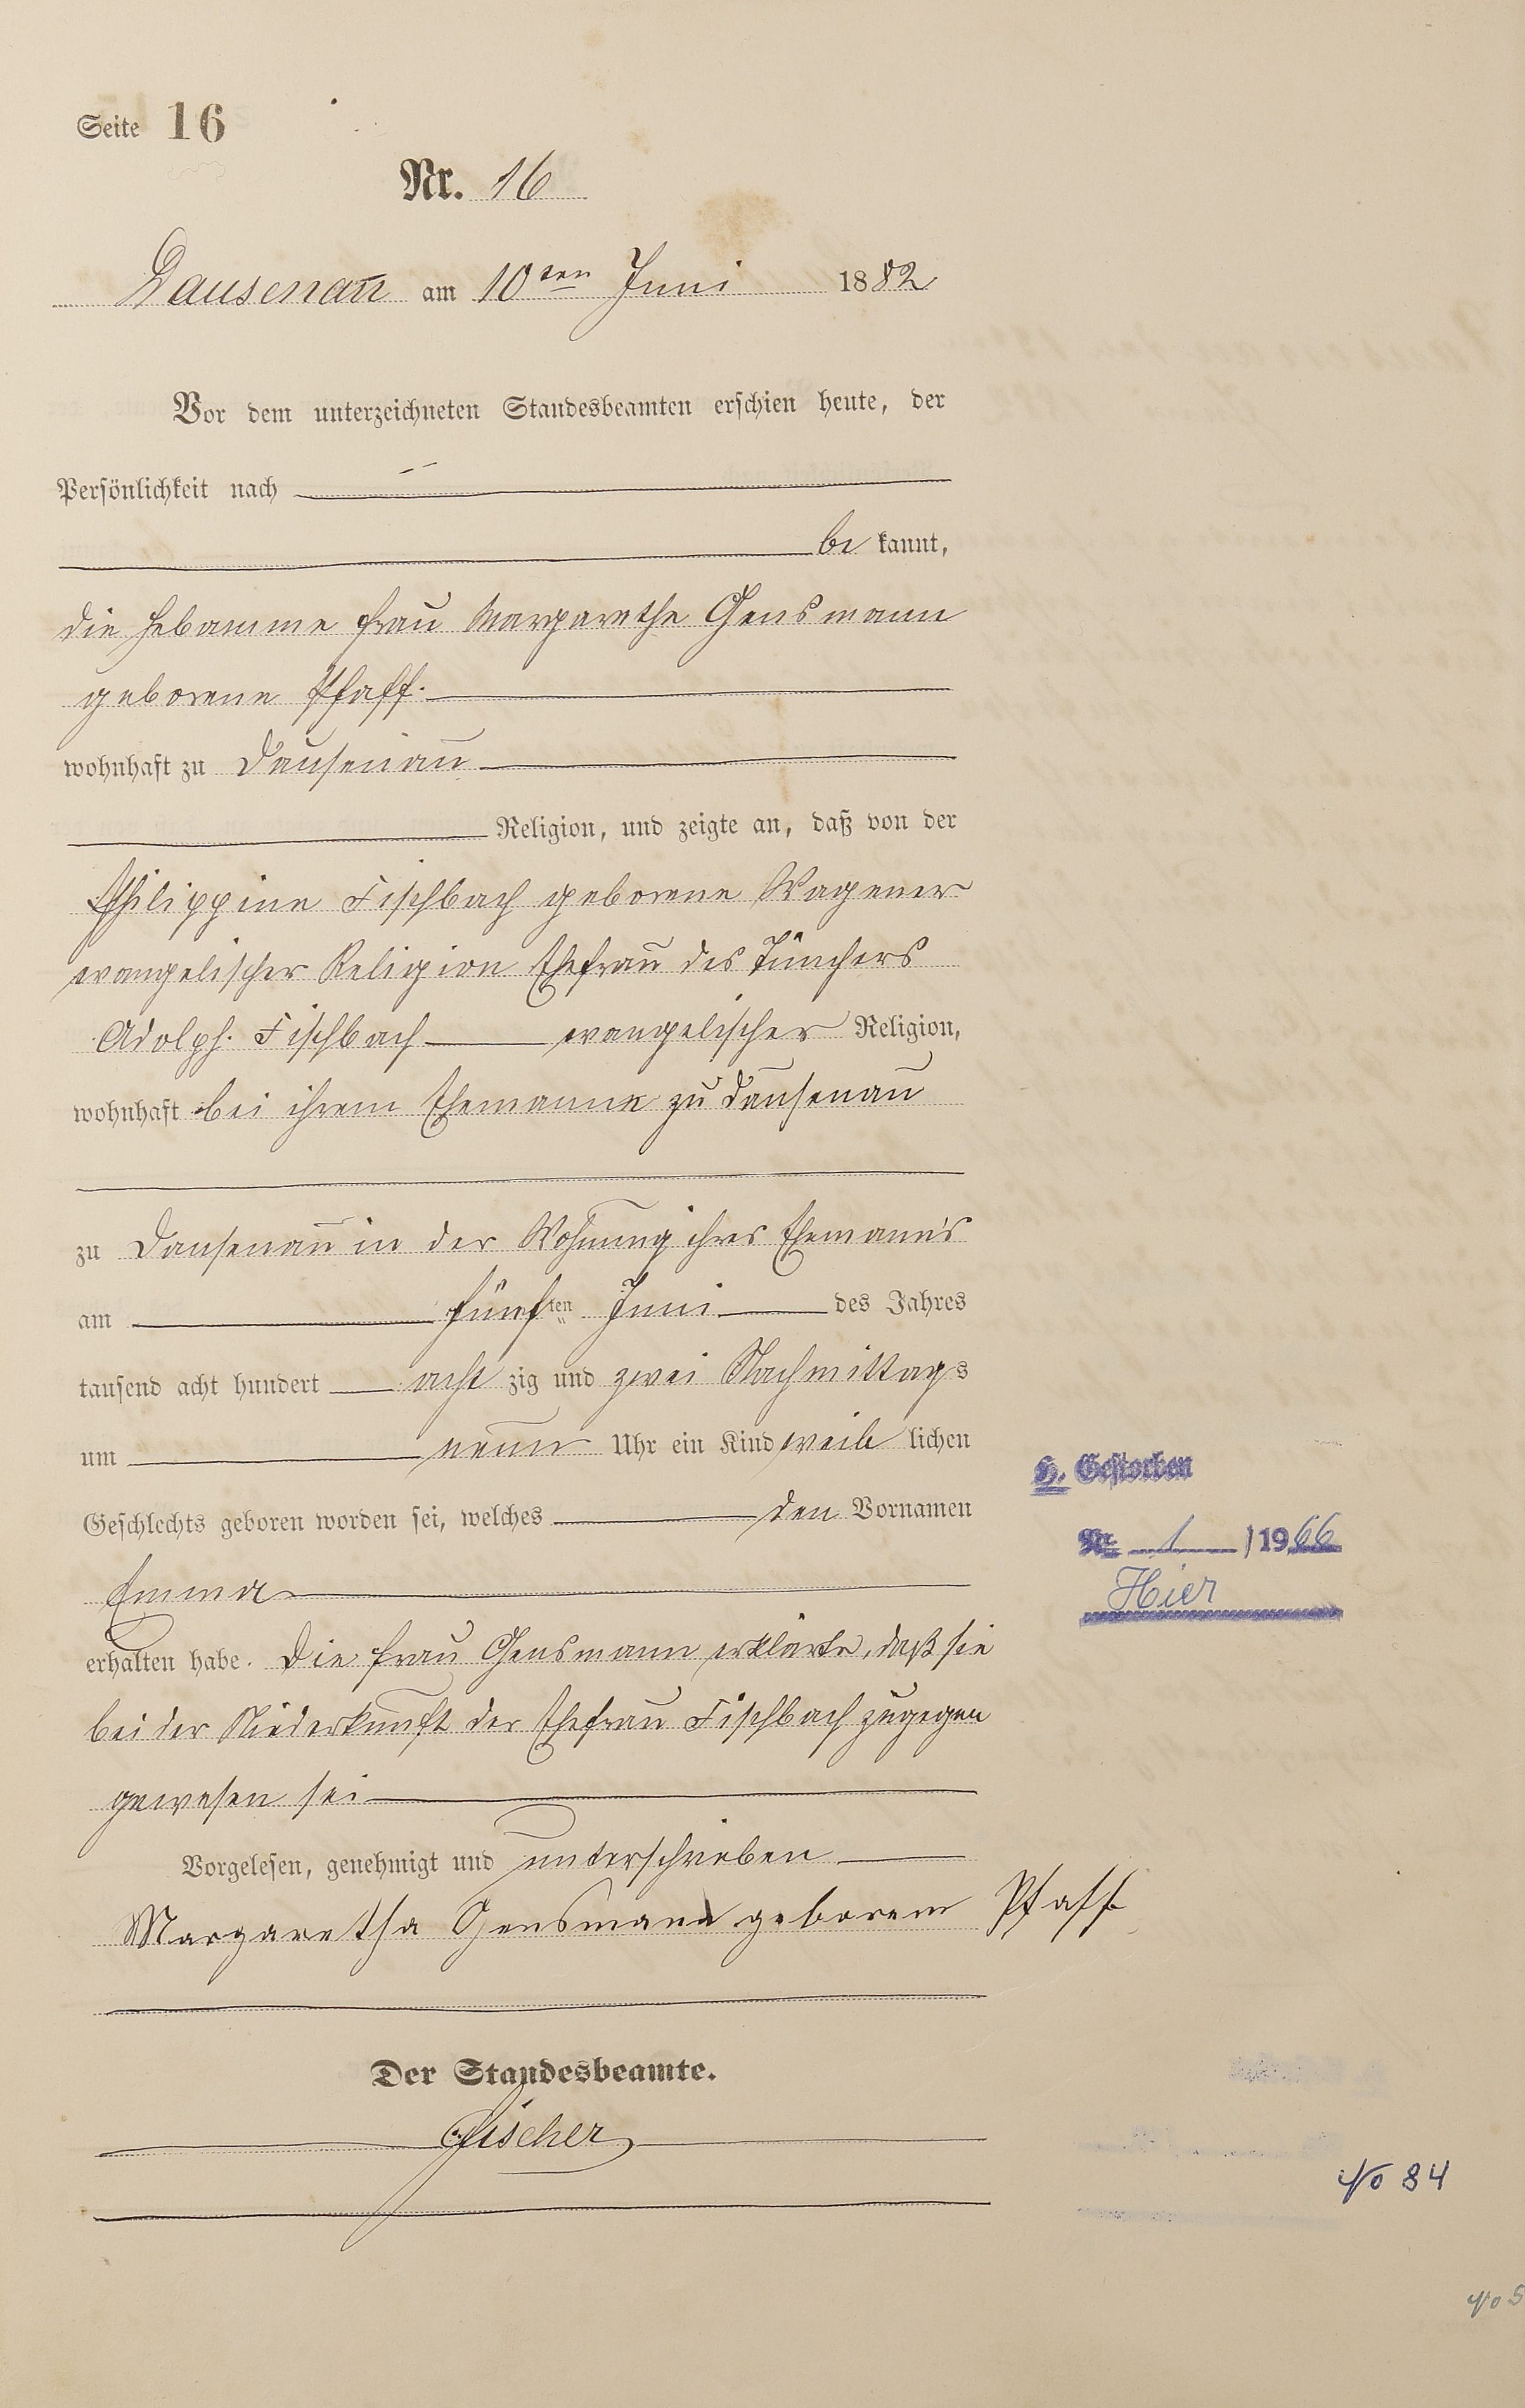 Seite 16
Nr. 16
Dausenau am 10ten Juni 1882
Vor dem unterzeichneten Standesbeamten erschien heute, der
Persönlichkeit nach
be kannt,
die Hebamme Frau Margarethe Gensmann
geborene Pfaff.
wohnhaft zu Dausenau
Religion, und zeigte an, daß von der
Philippine Fischbach geborene Wagener
evangelischer Religion Ehefrau des Tünchers
Adolph. Fischbach evangelischer Religion,
wohnhaft bei ihrem Ehemanne zu Dausenau
zu Dausenau in der Wohnung ihres Ehemann's
am fünften Juni des Jahres
tausend acht hundert acht zig und zwei Nachmittags
um neun Uhr ein Kind weib lichen
Geschlechts geboren worden sei, welches den Vornamen
Emma
erhalten habe. Die Frau Gensmann erklärte, daß sie
bei der Niederkunft der Ehefrau Fischbach zugegen
gewesen sei
Vorgelesen, genehmigt und unterschrieben
Margaretha Gensmann geborene Pfaff
Der Standesbeamte.
Fischer
H. Gestorben
Nr. 1 / 1966
Hier
No 84
No 5